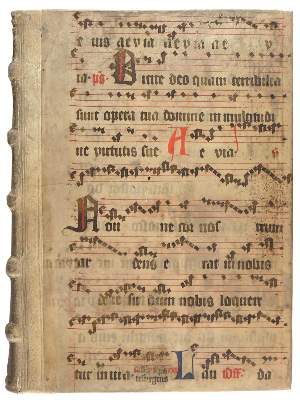 e ius aevia aevia ae v
ta ps Dicite deo quam terribilia
sunt opera tua domine in multitudi
ne virtutis tue A e via
Non ne cor nos trum
ar dens e rat in nobis
dum nobis loquere
tur in via Lau Off da